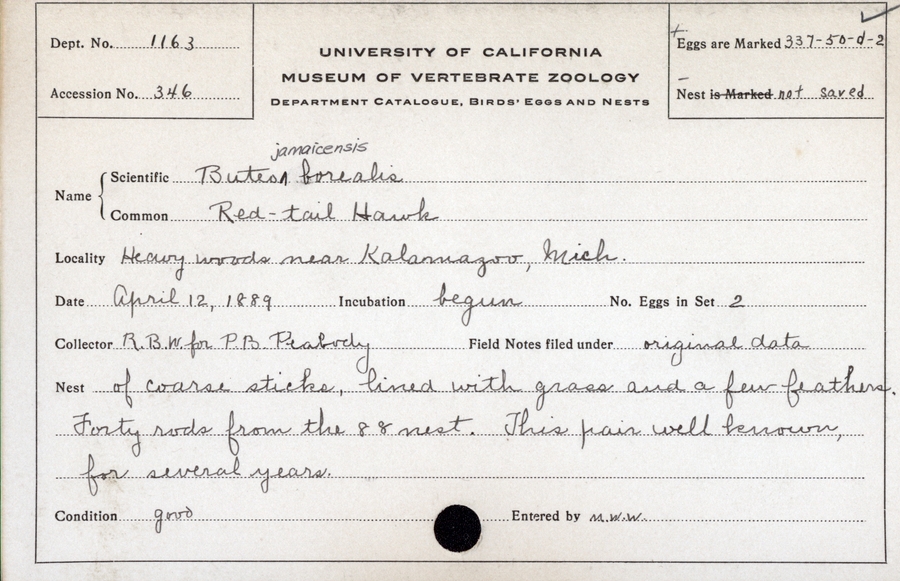 Dept. No. 1163
Accession No. 346
UNIVERSITY OF CALIFORNIA
MUSEUM OF VERTEBRATE ZOOLOGY
DEPARTMENT CATALOGUE, BIRDS' EGGS AND NESTS
+
Eggs are Marked 337-50-d-2
–
Nest is Marked not saved
jamaicensis
Name
Scientific Buteo borealis
Common Red-tail Hawk
Locality Heavy woods near Kalamazoo, Mich.
Date April 12, 1889 Incubation begun No. Eggs in Set 2
Collector R.B.W. for P.B. Peabody Field Notes filed under original data
Nest of coarse sticks, lined with grass and a few feathers.
Forty rods from the 88 nest. This pair well known,
for several years.
Condition good Entered by M.W.W.